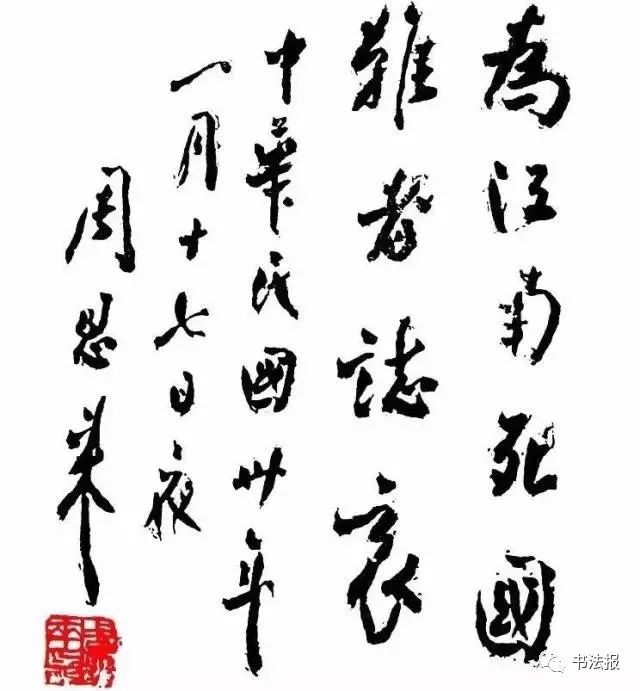 為江南死國
難者誌哀
中華民國卅年
一月十七日夜
周恩来
书法报